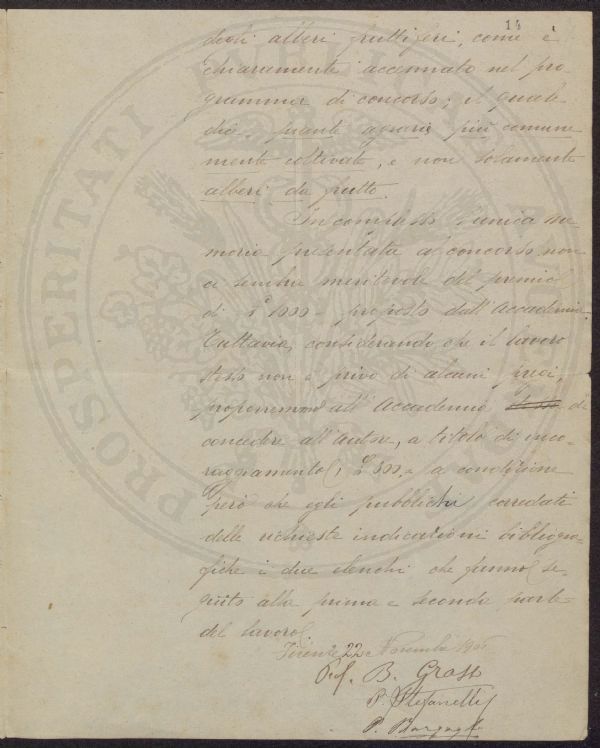 14
degli alberi fruttiferi, come è
chiaramente accennato nel pro-
gramma di concorso; il quale
dice piante agrarie più comune
mente coltivate, e non solamente
alberi da frutto.
In complesso l'unica me
moria presentata al concorso non
ci sembra meritevole del premio
di £ 1000 - proposto dall'Accademia.
Tuttavia, considerando che il lavoro
stesso non è privo di alcuni pregi,
proporremmo all'Accademia di
concedere all'autore, a titolo di inco-
raggiamento, £ 500 - a condizione
però che egli pubblichi corredati
delle richieste indicazioni bibliogra-
fiche i due elenchi che fanno se-
guito alla prima e seconda parte
del lavoro.
Firenze 22 Novembre
Prof. B. Grassi
P. Stefanelli
P. Bargagli
PROSPERITATI